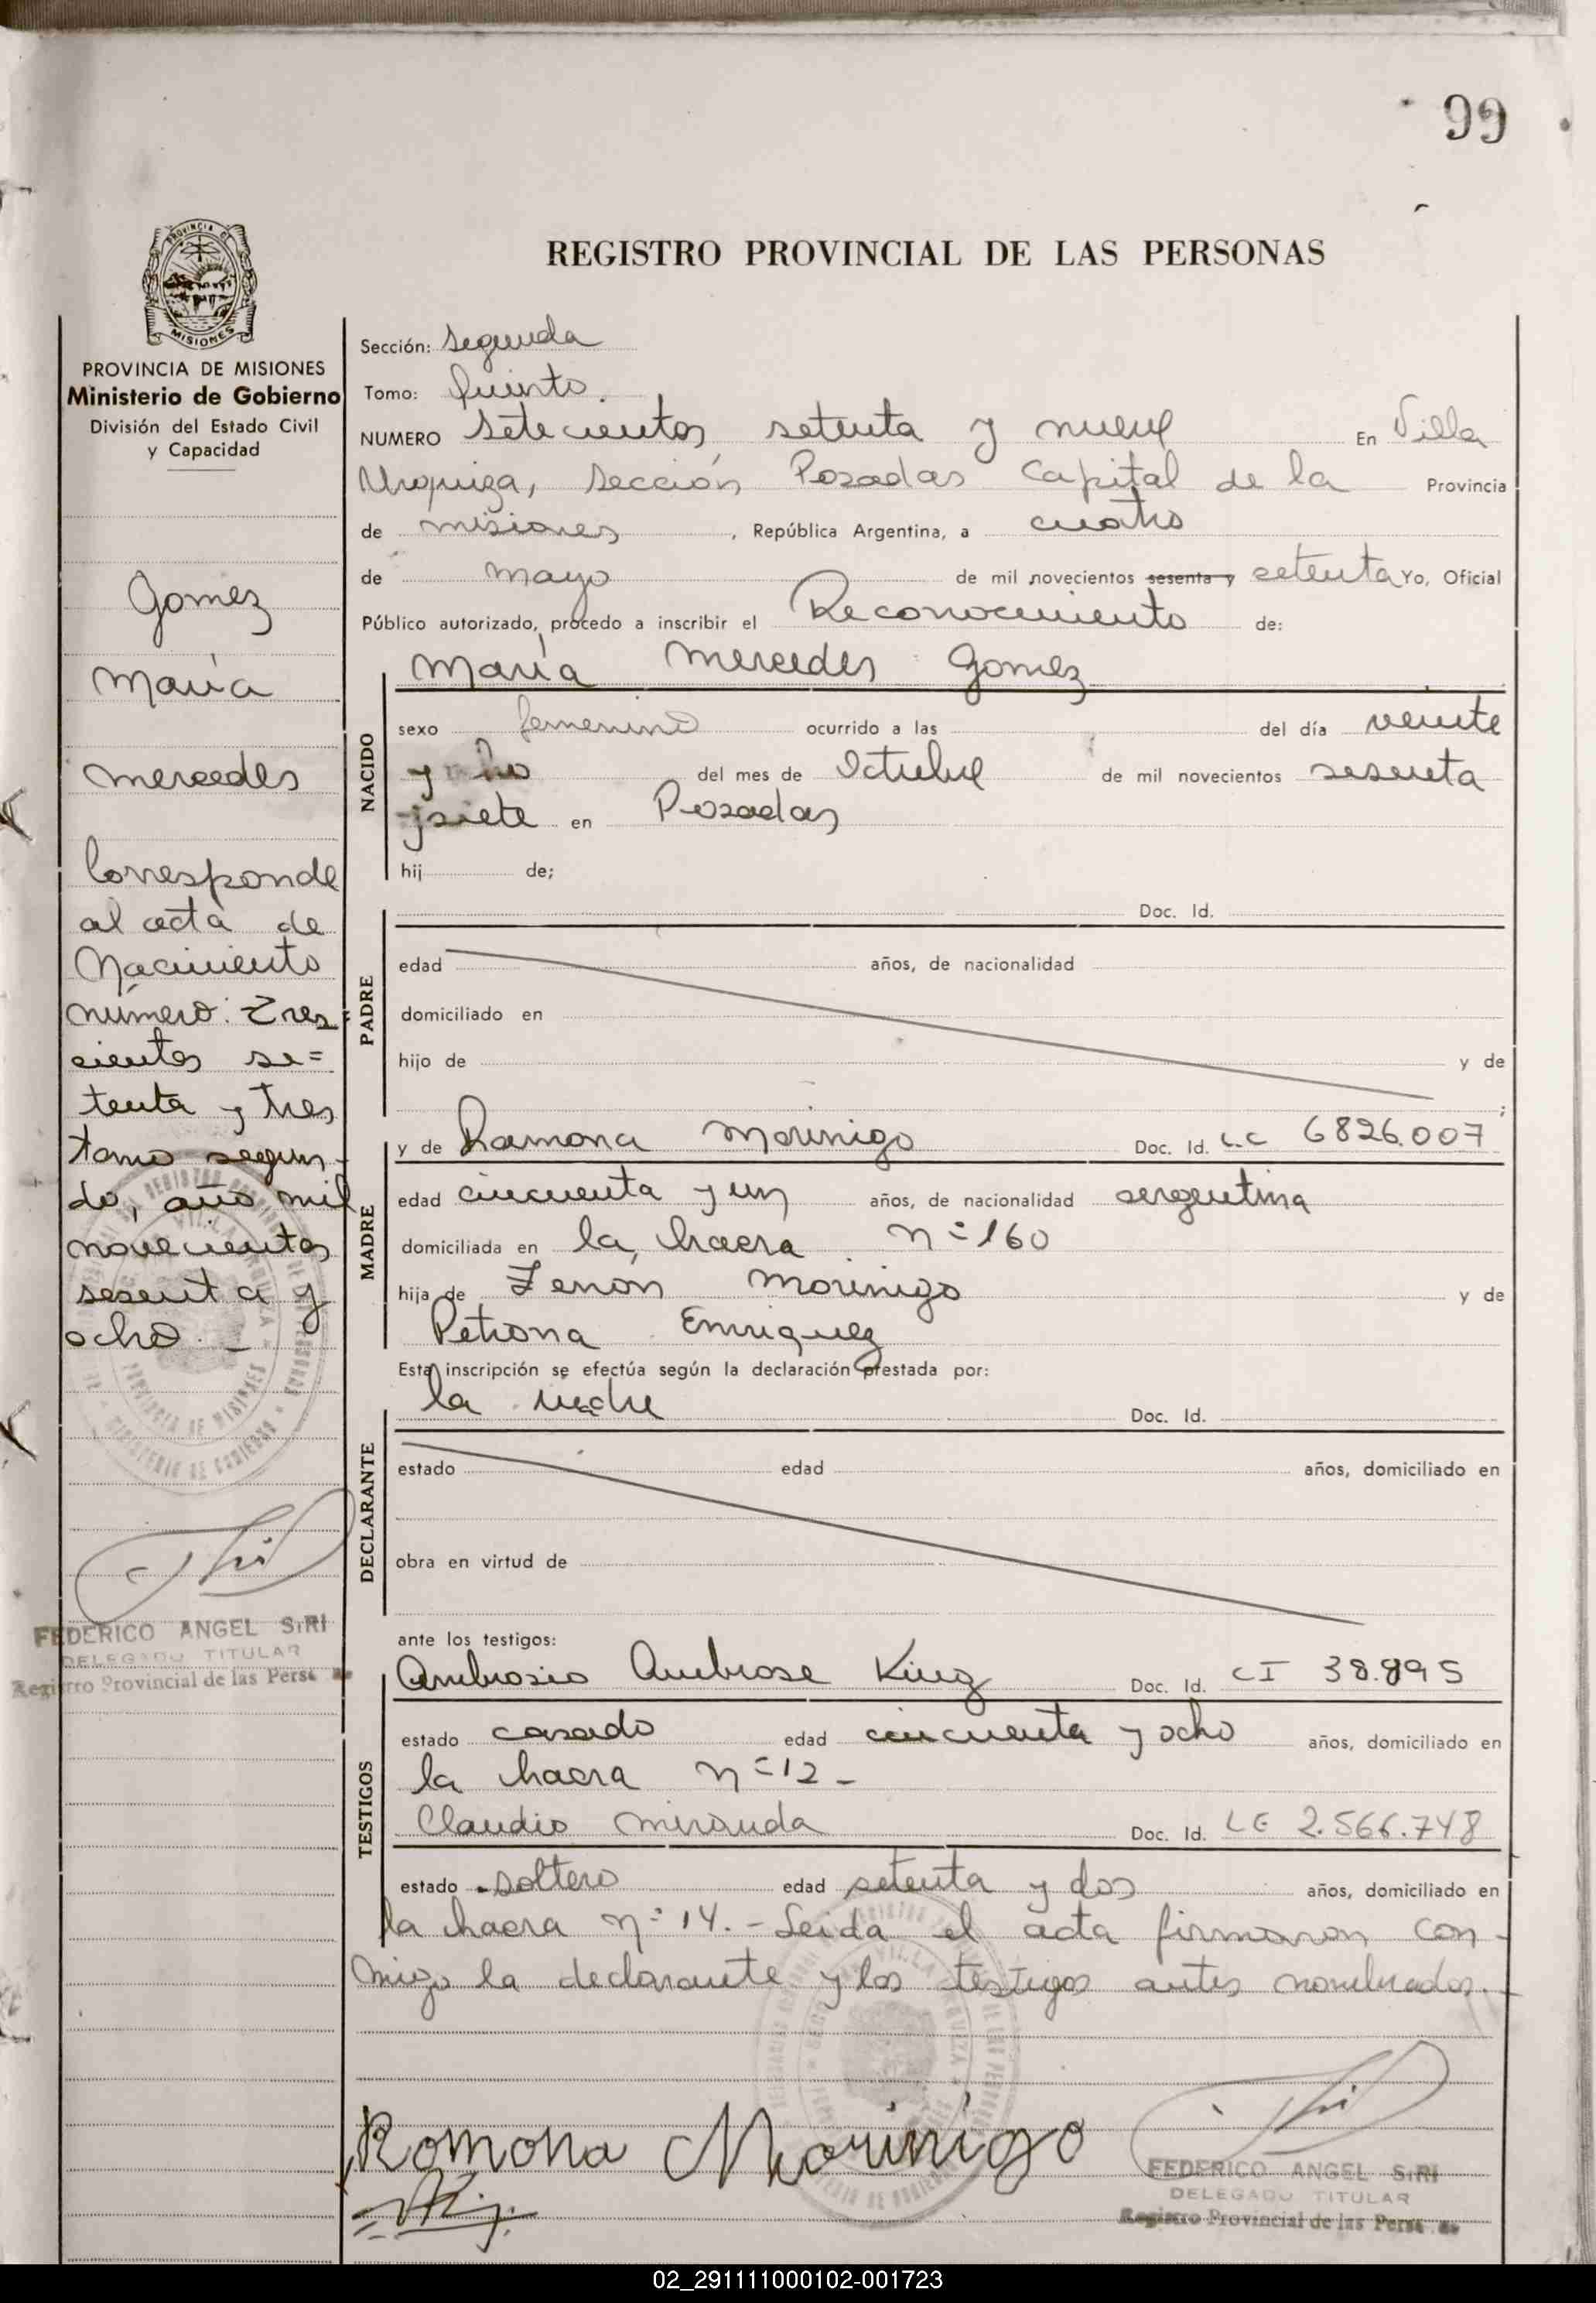 99
REGISTRO PROVINCIAL DE LAS PERSONAS
PROVINCIA DE MISIONES
Ministerio de Gobierno
División del Estado Civil
y Capacidad
Gomez
María
mercedes
Corresponde
al acta de
Nacimiento
número: Tres
cientos se=
tenta y tres
tomo segun-
do, año mil
novecientos
sesenta y
ocho. -
FEDERICO ANGEL SIRI
DELEGADO TITULAR
Registro Provincial de las Perso
Sección: Segunda
Tomo: Quinto.
NUMERO Setecientos setenta y nueve En Villa
Urquiza, Sección Posadas Capital de la Provincia
de misiones, República Argentina, a cuatro
de mayo de mil novecientos sesenta y setenta Yo, Oficial
Público autorizado, procedo a inscribir el Reconocimiento de:
María mercedes Gomez
NACIDO
sexo femenino ocurrido a las del día veinte
y ocho del mes de Octubre de mil novecientos sesenta
y siete en Posadas
hij de;
Doc. Id.
PADRE
edad años, de nacionalidad
domiciliado en
hijo de y de
;
MADRE
y de Ramona Morinigo Doc. Id. L.C 6826.007
edad cincuenta y un años, de nacionalidad argentina
domiciliada en la chacra n=160
hija de Zenón Morinigo y de
Petrona Enriquez
Esta inscripción se efectúa según la declaración prestada por:
la madre Doc. Id.
DECLARANTE
estado edad años, domiciliado en
obra en virtud de
ante los testigos:
TESTIGOS
Ambrosio Ambrose King Doc. Id. CI 38.895
estado casado edad cincuenta y ocho años, domiciliado en
la chacra n=12-
Claudio miranda Doc. Id. LE 2.566.748
estado soltero edad setenta y dos años, domiciliado en
la chacra n=14.- Leida el acta firmaron con-
migo la declarante y los testigos antes nombrados.-
Romona Morinigo
FEDERICO ANGEL SIRI
DELEGADO TITULAR
Registro Provincial de las Perso
02_291111000102-001723